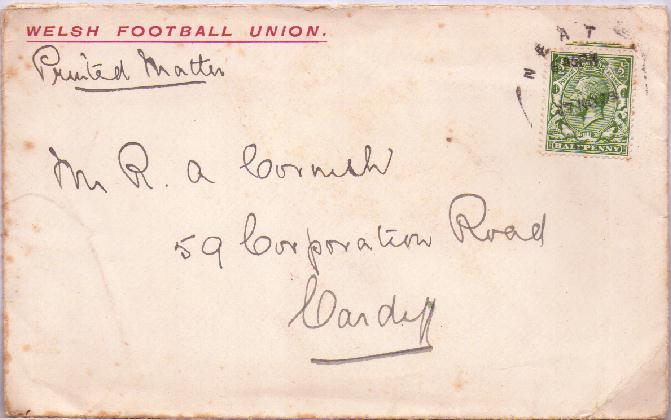 WELSH FOOTBALL UNION.
Printed Matter
NEAT
HALFPENNY
Mr R. A Cornish
59 Corporation Road
Cardiff